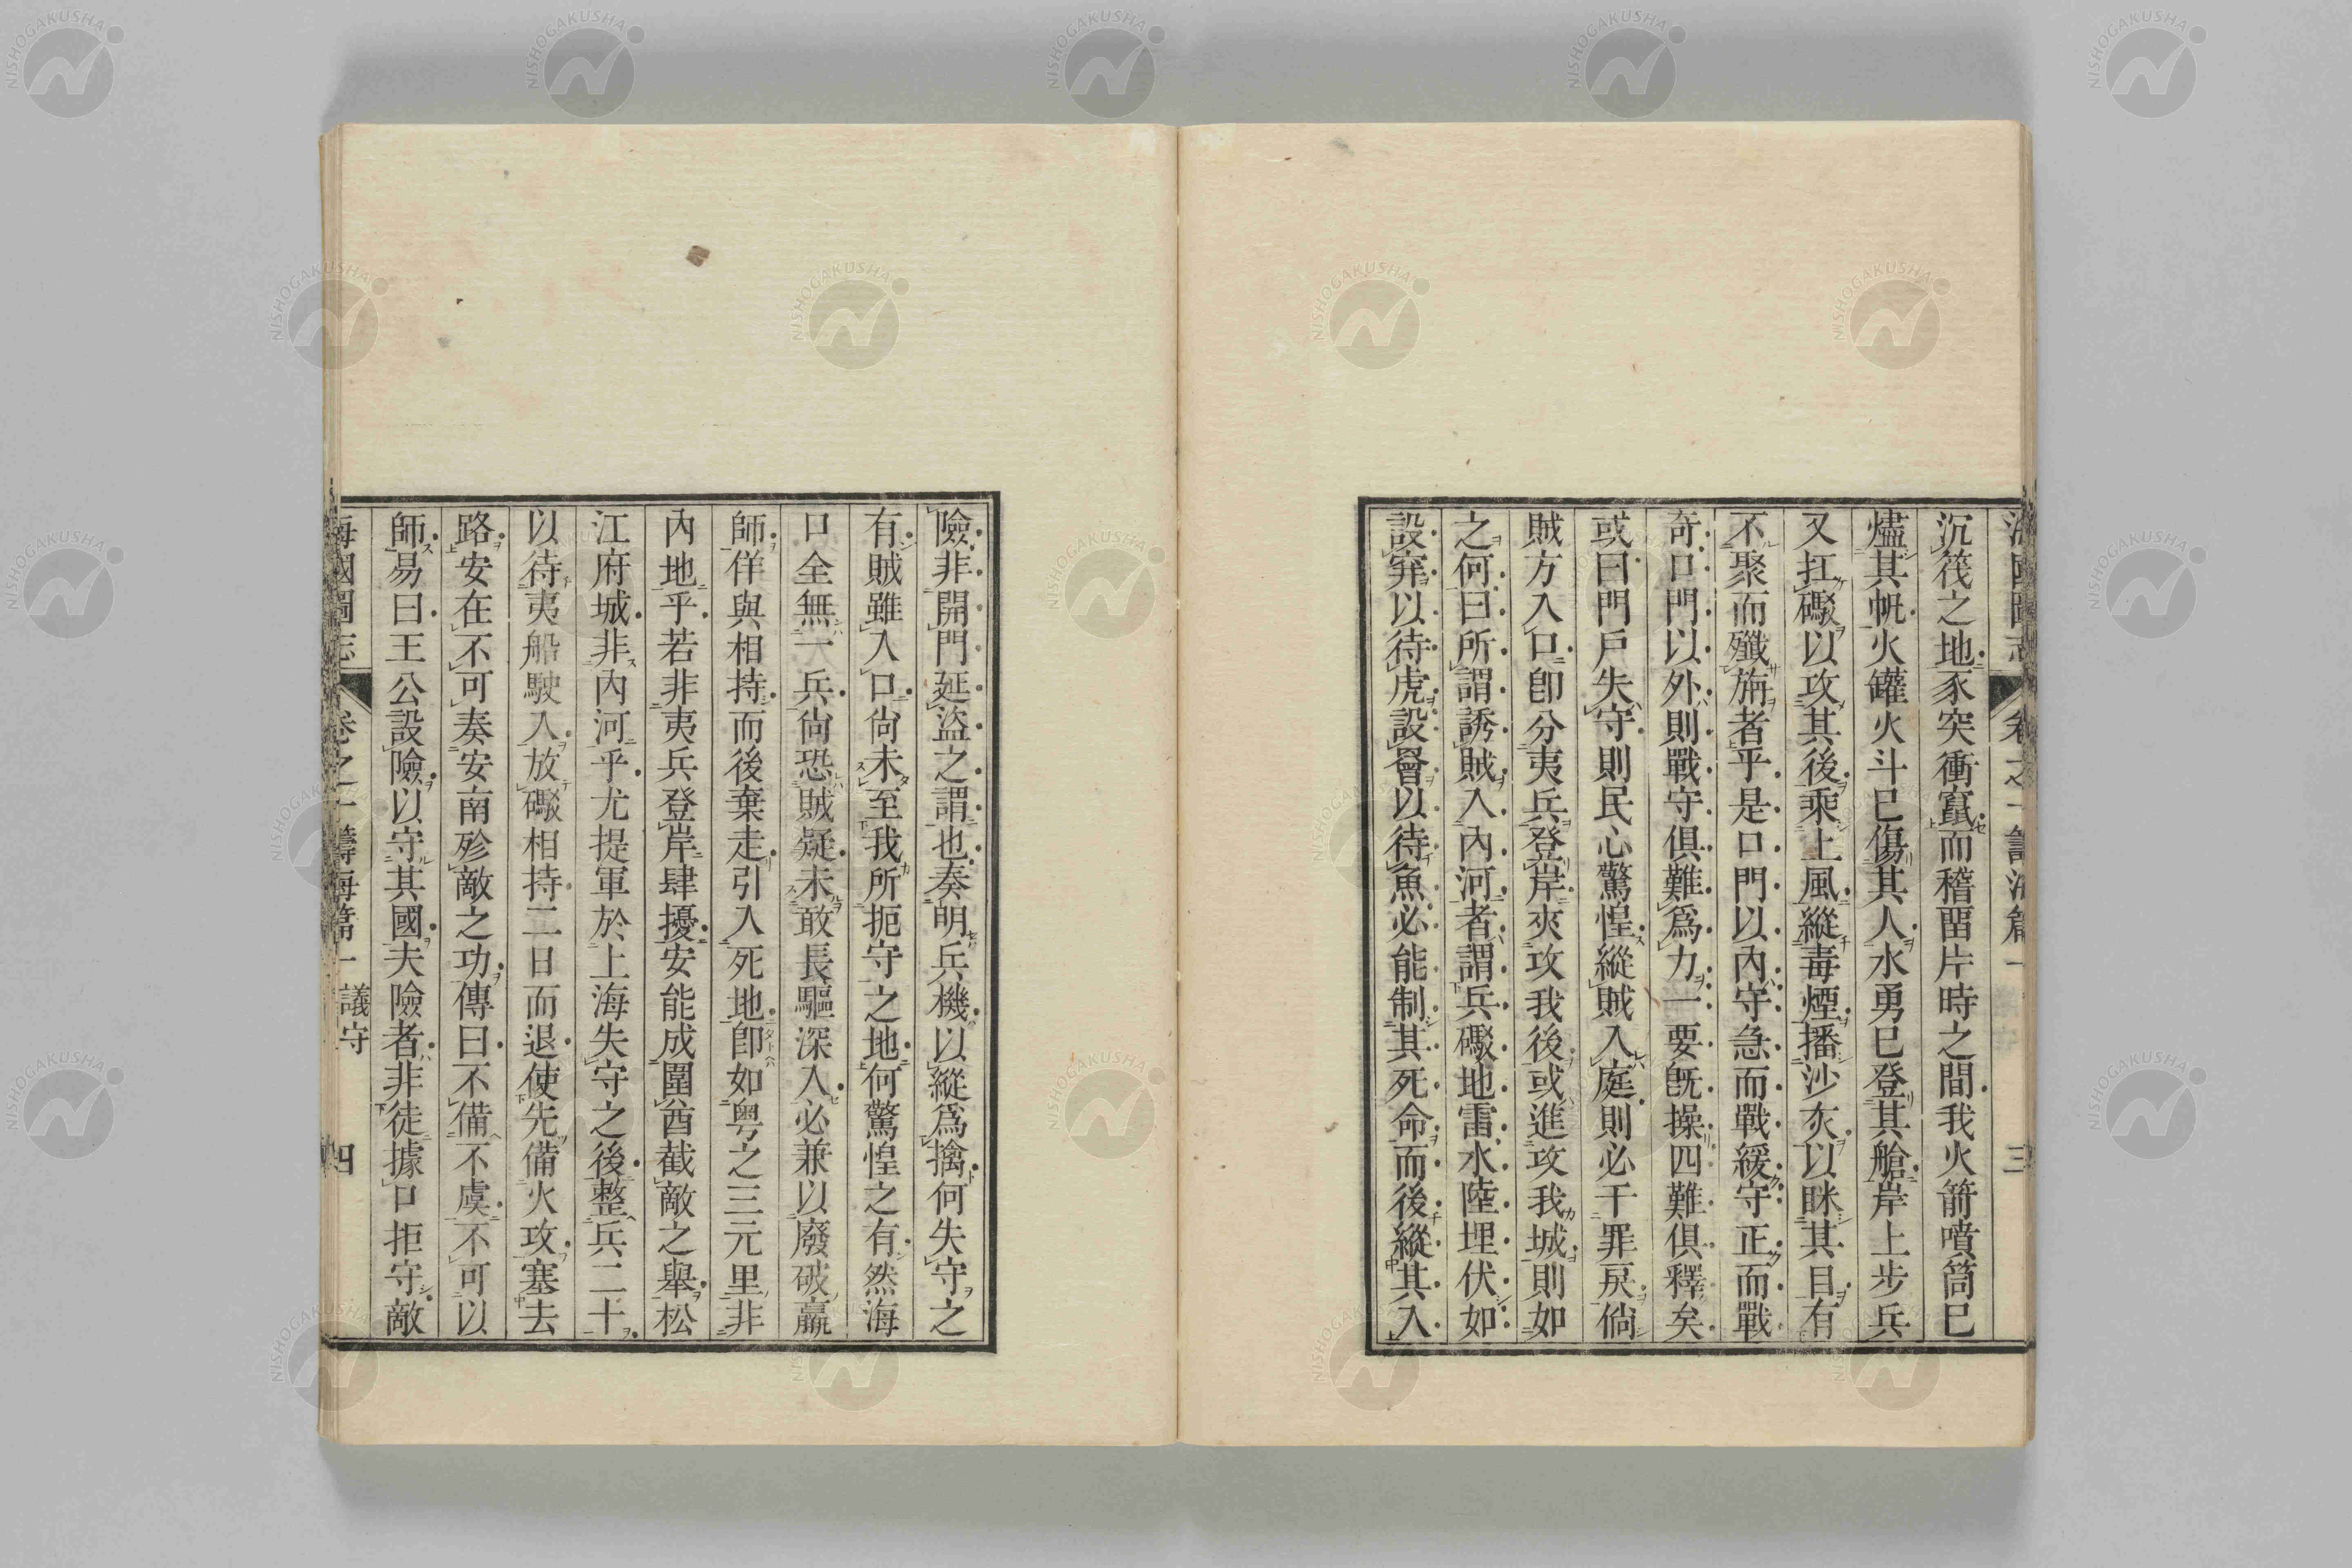 海國圖志 卷之一 籌海篇一 三
沉筏之地豕突衝竄而稽畱片時之間我火箭噴筒已
燼其帆火罐火斗已傷其人水勇已登其艙岸上步兵
又扛礮以攻其後乘上風縱毒煙播沙灰以眯其目有
不聚而殲旃者乎是口門以內守急而戰緩守正而戰
奇口門以外則戰守俱難爲力一要旣操四難俱釋矣
或曰門戶失守則民心驚惶縱賊入庭則必干罪戾倘
賊方入口卽分夷兵登岸夾攻我後或進攻我城則如
之何曰所謂誘賊入內河者謂兵礮地雷水陸埋伏如
設穽以待虎設罾以待魚必能制其死命而後縱其入
險非開門延盜之謂也奏明兵機以縱爲擒何失守之
有賊雖入口尙未至我所扼守之地何驚惶之有然海
口全無一兵尙恐賊疑未敢長驅深入必兼以廢破羸
師佯與相持而後棄走引入死地卽如粵之三元里非
內地乎若非夷兵登岸肆擾安能成圍酋截敵之舉松
江府城非內河乎尤提軍於上海失守之後整兵二十
以待夷船駛入放礮相持二日而退使先備火攻塞去
路安在不可奏安南殄敵之功傳曰不備不虞不可以
師易曰王公設險以守其國夫險者非徒據口拒守敵
海國圖志 卷之一 籌海篇一 議守 四
NISHOGAKUSHA